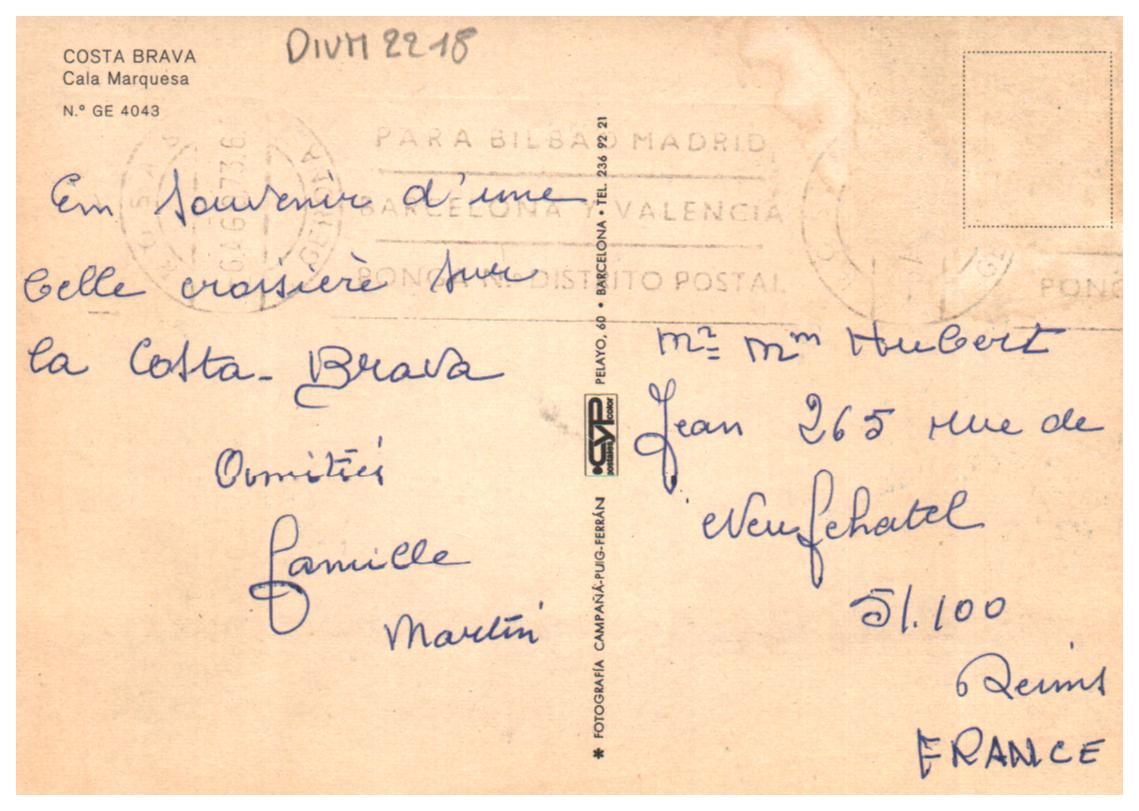 COSTA BRAVA
Cala Marquesa
N.º GE 4043
DIVM 22 18
PARA BILBAO MADRID
BARCELONA Y VALENCIA
PONGA Nº DISTRITO POSTAL
PONG
GERONA
En souvenir d'une
belle croisière sur
la Costa - Brava
Amitiés
famille
Martin
PELAYO, 60 • BARCELONA • TEL. 236 92 21
CYP
postales color
* FOTOGRAFÍA CAMPAÑÁ-PUIG-FERRÁN
Mr Mm Hubert
Jean 265 rue de
Neufchatel
51.100
Reims
FRANCE